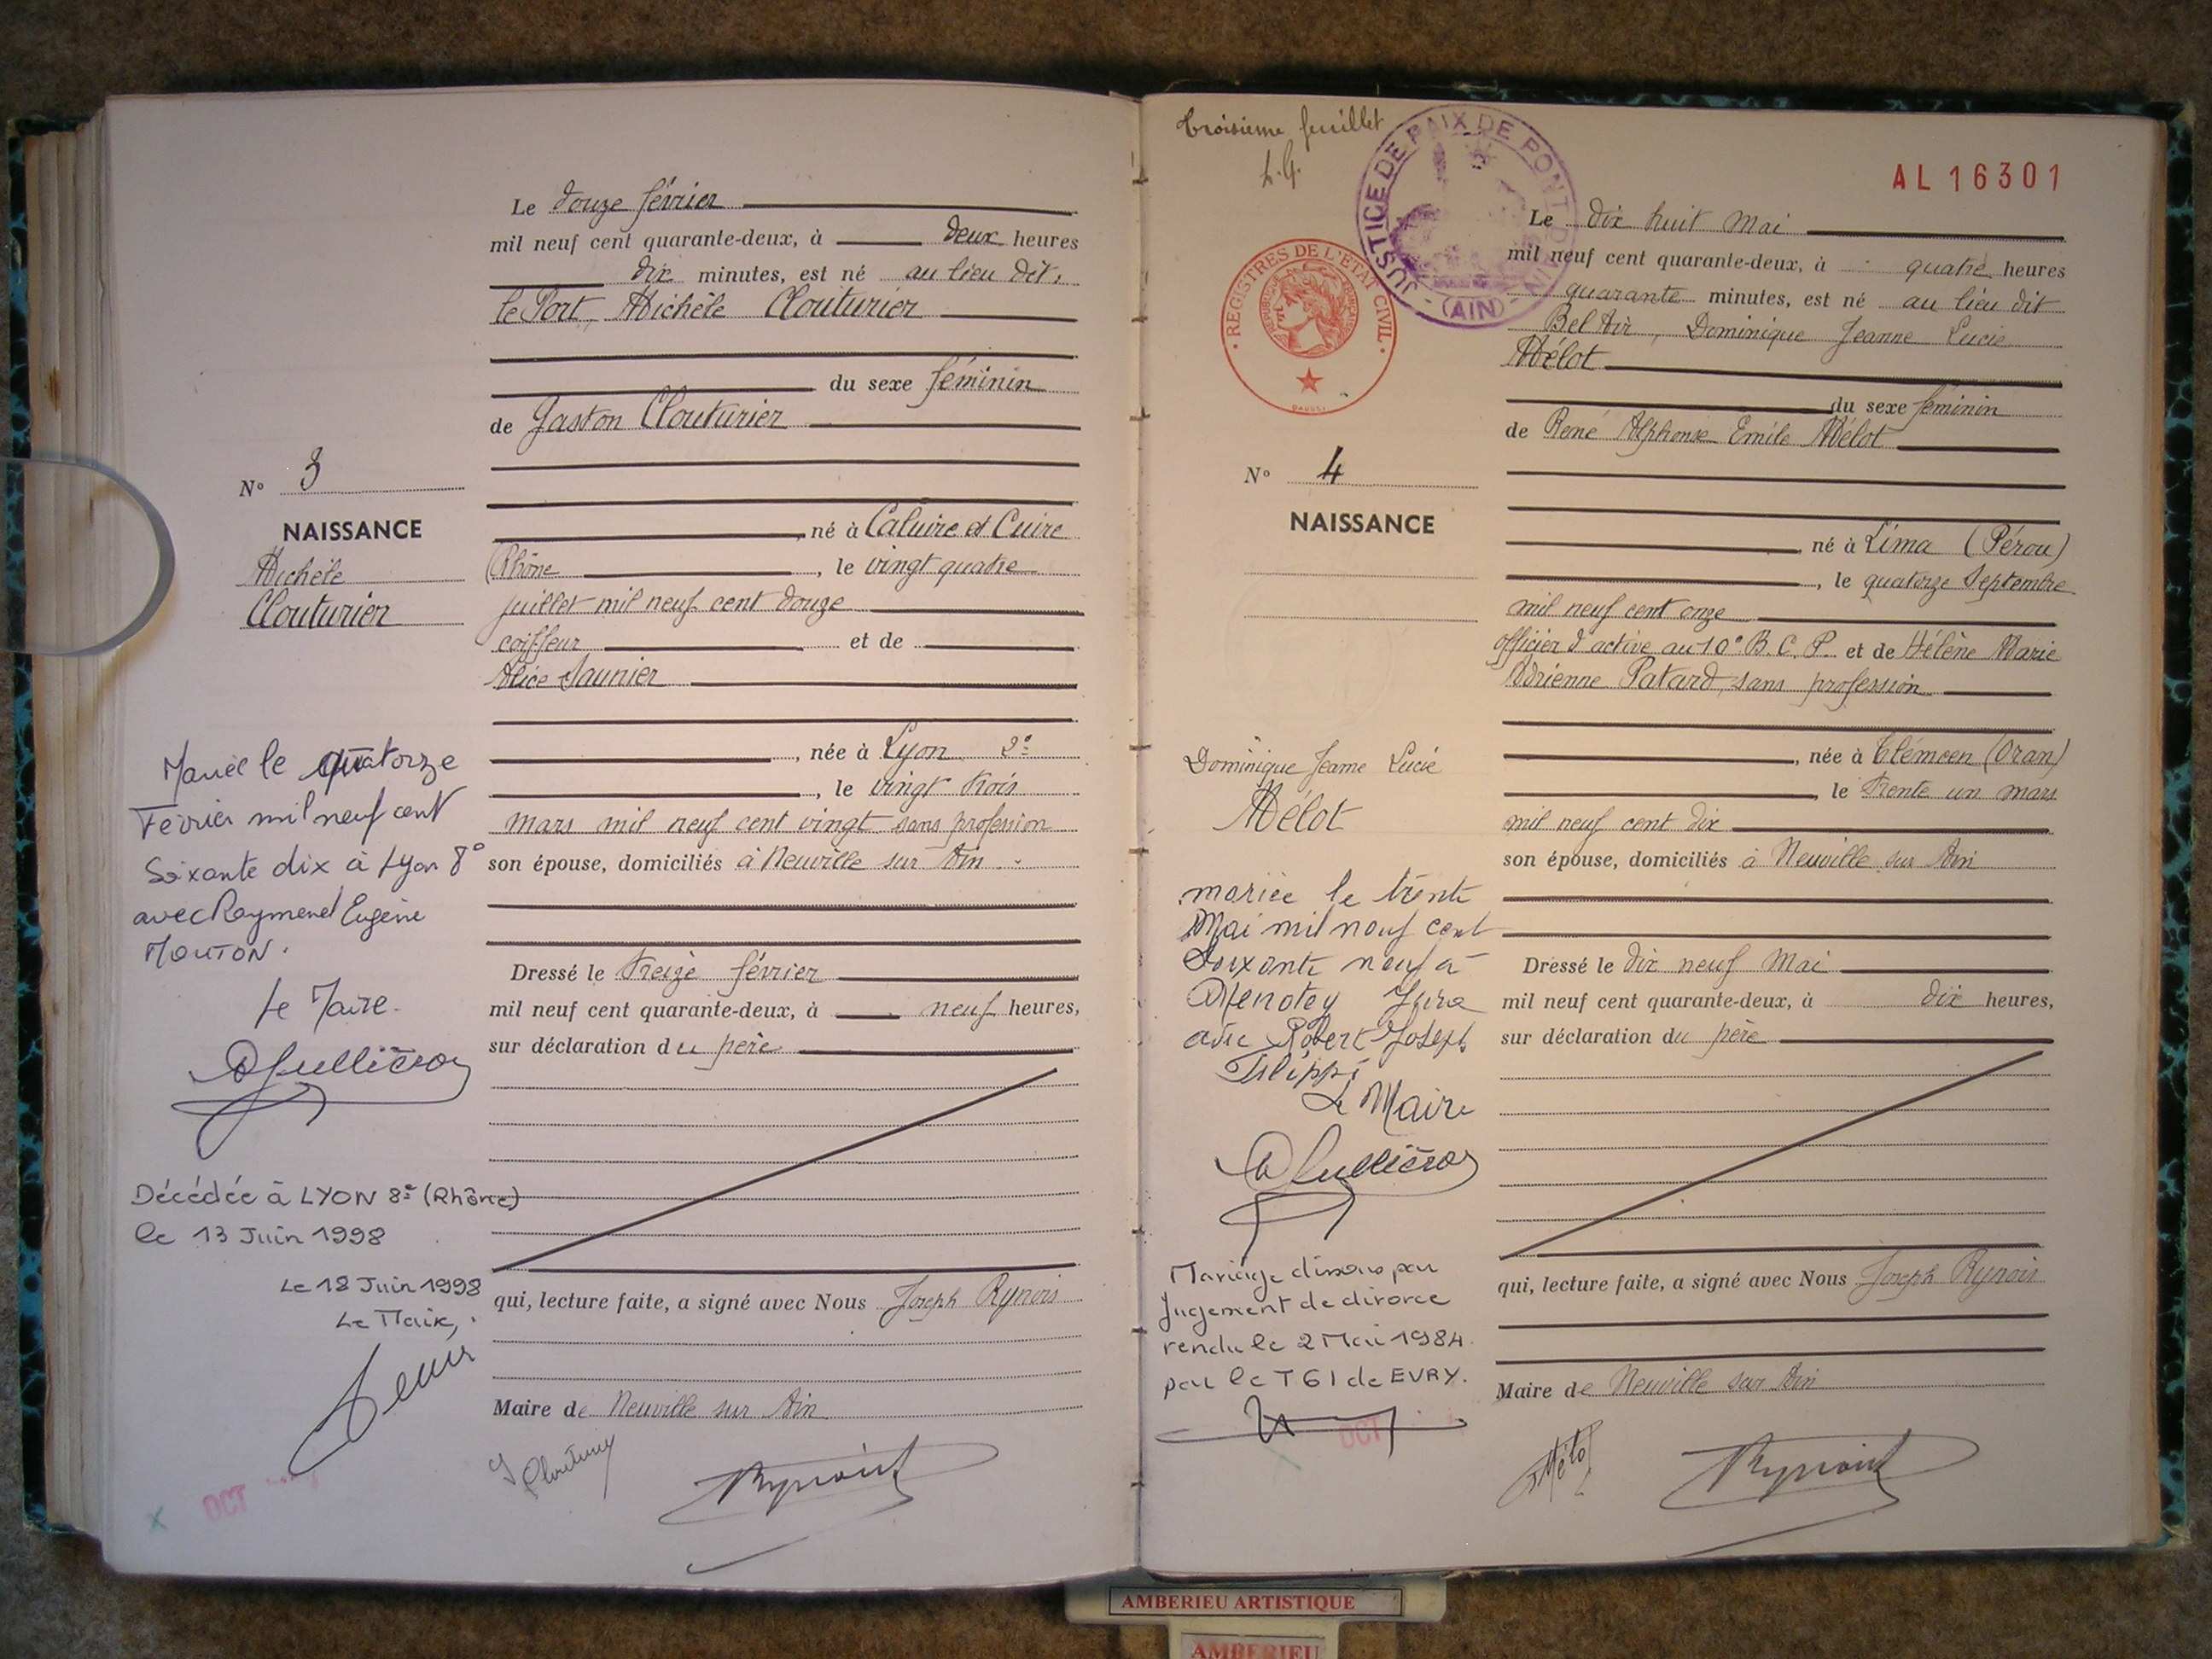 Le douze février
mil neuf cent quarante-deux, à deux heures
dix minutes, est né au lieu dit:
le Port, Michèle Clouturier
du sexe féminin
de Gaston Clouturier
né à Caluire et Cuire
(Rhône, le vingt quatre
juillet mil neuf cent douze
coiffeur et de
Alice Saunier
, née à Lyon 2e
, le vingt trois
mars mil neuf cent vingt sans profession
son épouse, domiciliés à Neuville sur Ain
Dressé le treize février
mil neuf cent quarante-deux, à neuf heures,
sur déclaration du père
qui, lecture faite, a signé avec Nous Joseph Rynois
Maire de Neuville sur Ain
No 3
NAISSANCE
Michèle
Clouturier
Mariée le quatorze
Février mil neuf cent
Soixante dix à Lyon 8°
avec Raymond Eugène
MOUTON.
Le Maire.
Décédée à LYON 8è (Rhône)
le 13 Juin 1998
Le 18 Juin 1998
Le Maire,
OCT
Troisième feuillet
L.G.
JUSTICE DE PAIX DE PONT D'AIN
(AIN)
REGISTRES DE L'ETAT CIVIL
AL 16301
Le dix huit Mai
mil neuf cent quarante-deux, à quatre heures
quarante minutes, est né au lieu dit
Bel Air, Dominique Jeanne Lucie
Mélot
du sexe féminin
de René Alphonse Emile Mélot
né à Lima (Pérou)
, le quatorze Septembre
mil neuf cent onze
officier d'active au 10e B.C.P. et de Hélène Marie
Adrienne Patard, sans profession
, née à Tlémcen (Oran)
, le trente un mars
mil neuf cent dix
son épouse, domiciliés à Neuville sur Ain
Dressé le dix neuf Mai
mil neuf cent quarante-deux, à dix heures,
sur déclaration du père
qui, lecture faite, a signé avec Nous Joseph Rynois
Maire de Neuville sur Ain
Mélot
No 4
NAISSANCE
Dominique Jeanne Lucie
Mélot
mariée le trente
Mai mil neuf cent
Soixante neuf à
Menotey Jura
avec Robert Joseph
Filippi
Le Maire
Mariage dissous par
Jugement de divorce
rendu le 2 Mai 1984
par le TGI de EVRY.
OCT
AMBERIEU ARTISTIQUE
AMBERIEU